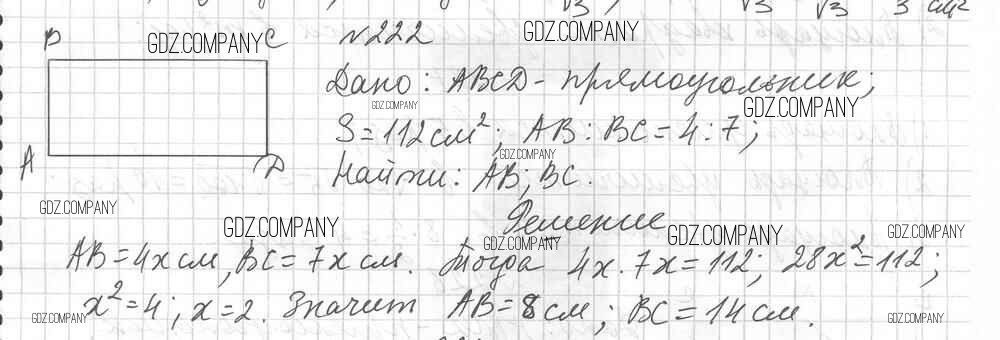 B C №222
Дано: ABCD - прямоугольник;
S = 112 см²; AB : BC = 4 : 7;
A D Найти: AB; BC.
Решение
AB = 4x см, BC = 7x см. Тогда 4x · 7x = 112; 28x² = 112;
x² = 4; x = 2. Значит AB = 8 см; BC = 14 см.
GDZ.COMPANY GDZ.COMPANY
GDZ.COMPANY GDZ.COMPANY
GDZ.COMPANY
GDZ.COMPANY
GDZ.COMPANY GDZ.COMPANY GDZ.COMPANY GDZ.COMPANY
GDZ.COMPANY GDZ.COMPANY